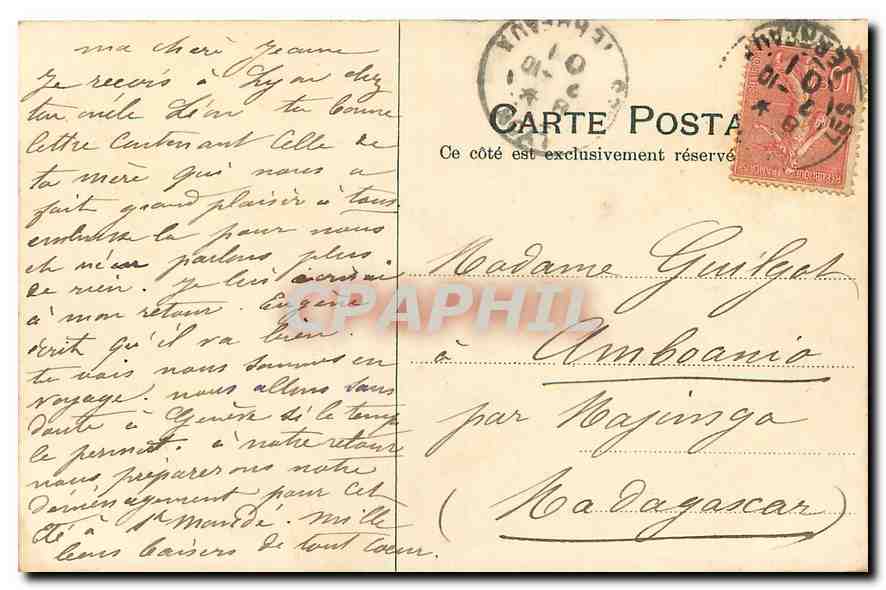 ma chère Jeanne
Je reçois à Lyon chez
ton oncle Léon ta bonne
lettre contenant celle de
ta mère qui nous a
fait grand plaisir à tous
embrasse la pour nous
et n'en parlons plus
de rien. Je lui écrirai
à mon retour. Eugène
écrit qu'il va bien.
tu vois nous sommes en
voyage. nous allons sans
doute à Genève si le temps
le permet. à notre retour
nous préparerons notre
déménagement pour cet
été à St Mandé. Mille
bons baisers de tout coeur.
CARTE POSTA
Ce côté est exclusivement réservé
Madame Guilgot
à Amboanio
par Majunga
(Madagascar)
CPAPHIL